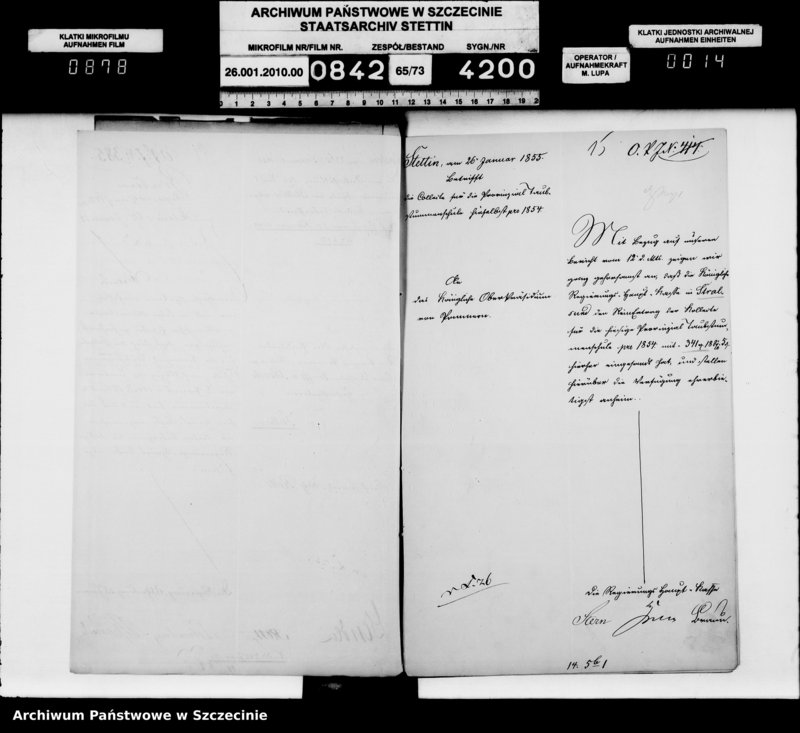 ARCHIWUM PAŃSTWOWE W SZCZECINIE
STAATSARCHIV STETTIN
KLATKI MIKROFILMU
AUFNAHMEN FILM
0878
MIKROFILM NR/FILM NR.
ZESPÓŁ/BESTAND
SYGN./NR
26.001.2010.00
0842
65/73
4200
OPERATOR /
AUFNAHMEKRAFT
M. LUPA
KLATKI JEDNOSTKI ARCHIWALNEJ
AUFNAHMEN EINHEITEN
0014
0 1 2 3 4 5 6 7 8 9 10 11 12 13 14 15 16 17 18 19 2
Stettin, am 26 Januar 1855.
Betrifft
die Collecte für die Provinzial Taub-
stummenschule hieselbst pro 1854.
An
das Königliche Ober Präsidium
von Pommern.
Mit Bezug auf unseren
Bericht vom 12 d. Mts. zeigen wir
ganz gehorsamst an, daß die Königliche
Regierungs-Haupt-Kasse in Stral-
sund den Reinertrag der Kollecte
für die hiesige Provinzial Taubstum-
menschule pro 1854 mit
hierher eingesandt hat, und stellen
hierüber die Verfügung ehrerbie-
tigst anheim.
Die Regierungs Haupt-Kasse
Stern
Archiwum Państwowe w Szczecinie